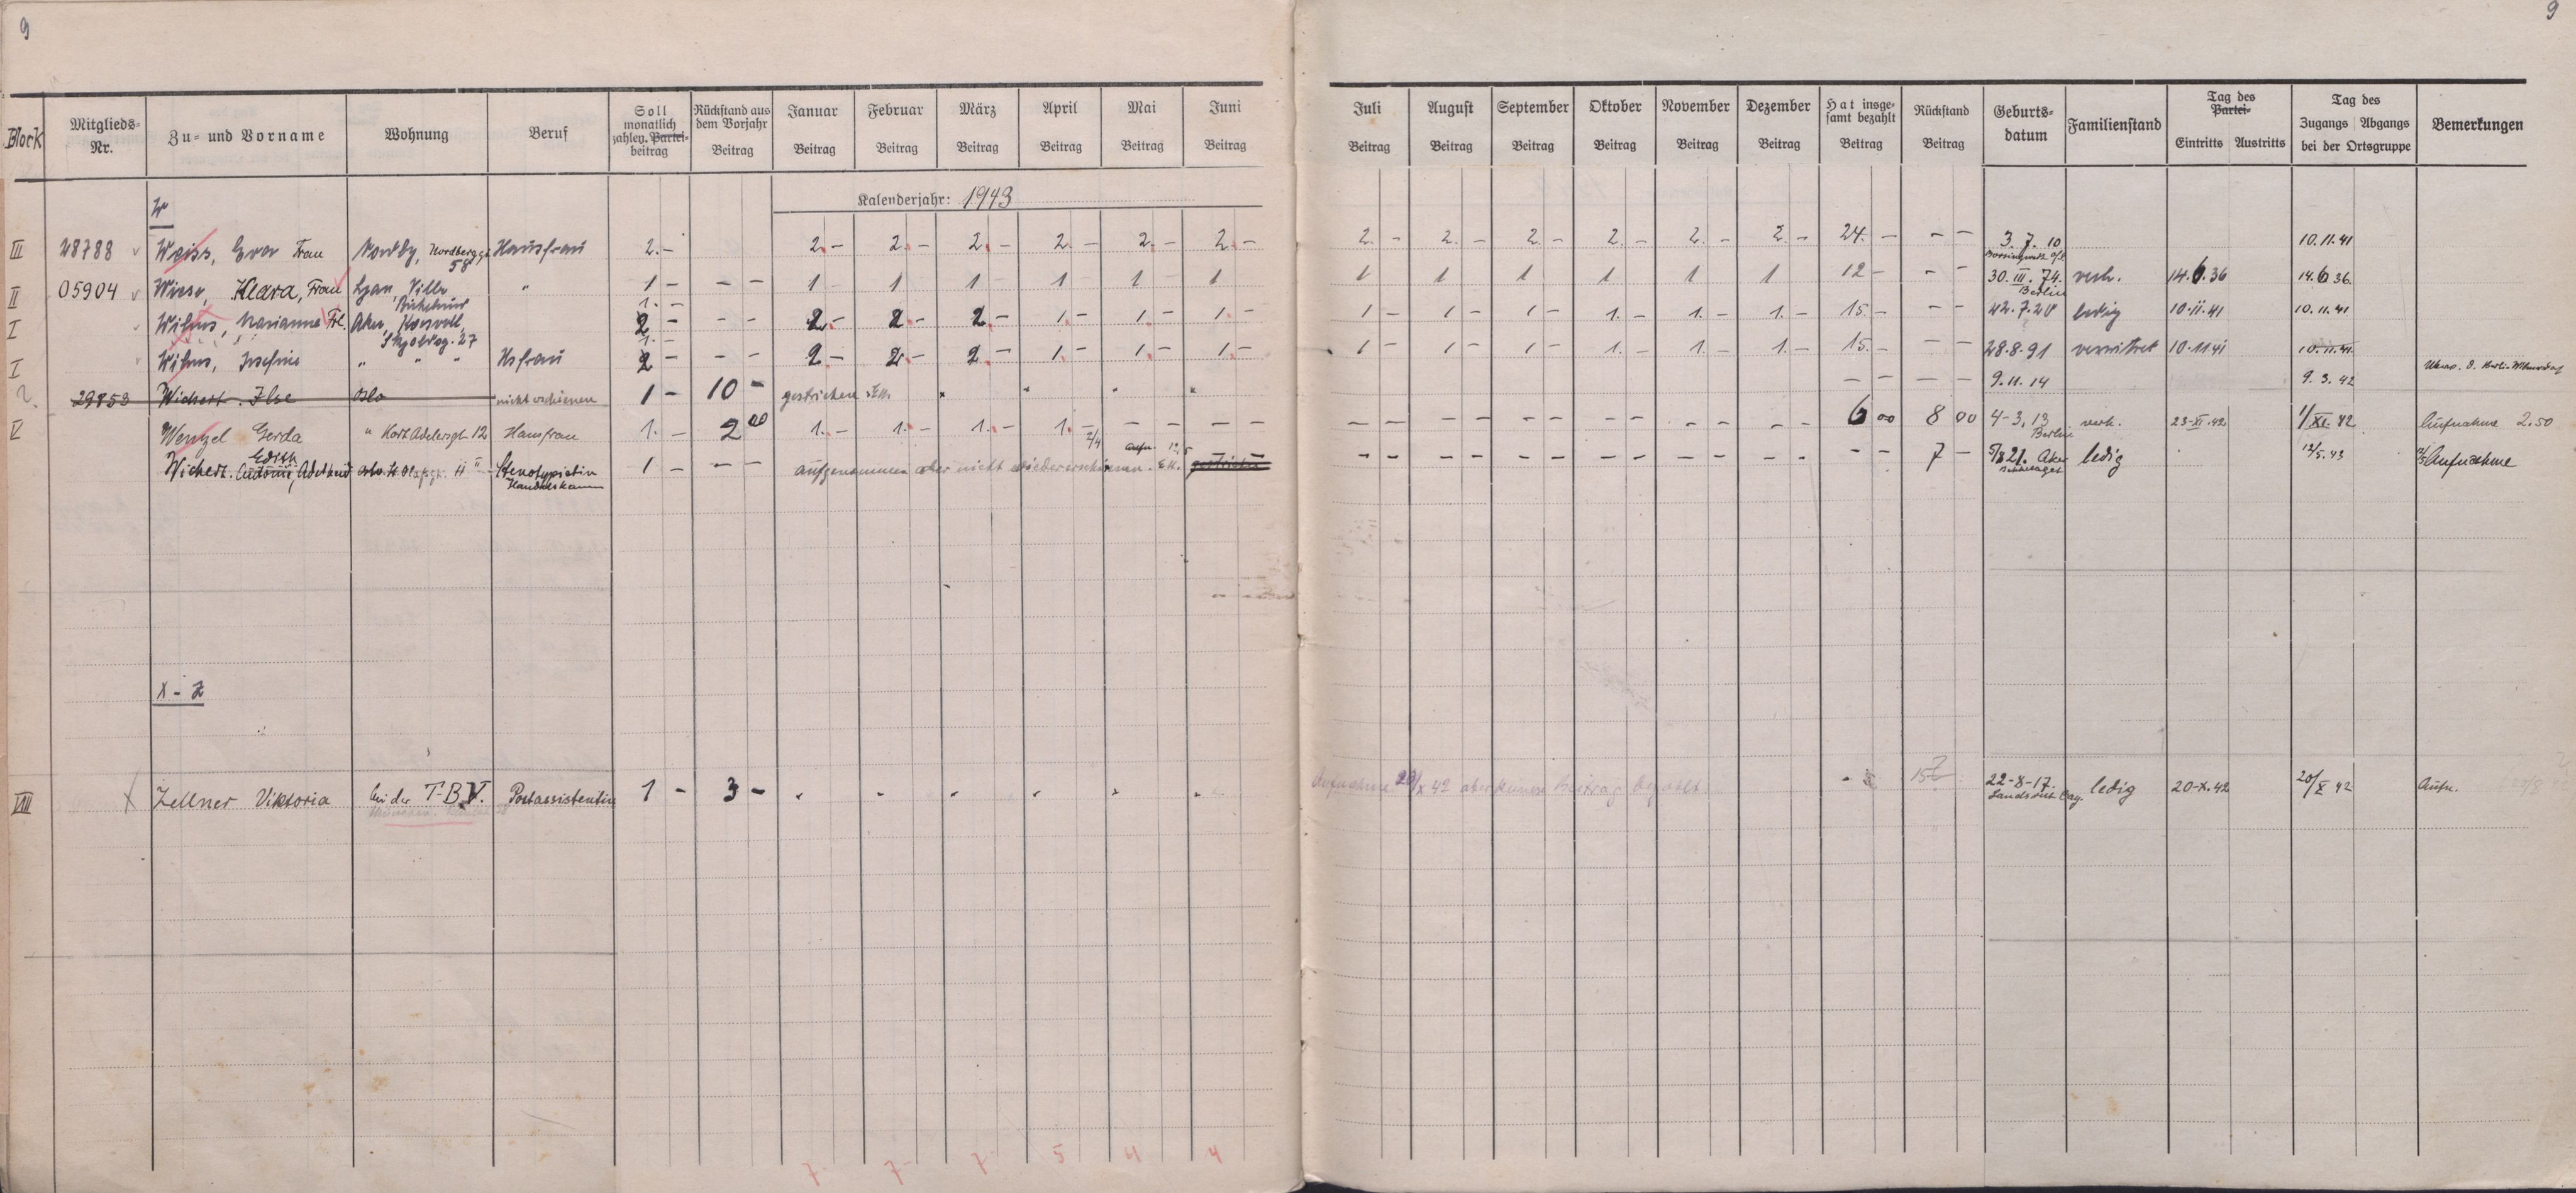 9 9
Block Mitglieds-Nr. Zu- und Vorname Wohnung Beruf Soll monatlich zahlen. Partei-beitrag Rückstand aus dem Vorjahr Beitrag Januar Beitrag Februar Beitrag März Beitrag April Beitrag Mai Beitrag Juni Beitrag Juli Beitrag August Beitrag September Beitrag Oktober Beitrag November Beitrag Dezember Beitrag Hat insgesamt bezahlt Beitrag Rückstand Beitrag Geburts-datum Familienstand Tag des Partei- Eintritts Austritts Tag des Zugangs Abgangs bei der Ortsgruppe Bemerkungen
Kalenderjahr: 1943
W
III 28788 Weiss, Frau Nordby, Nordbergg. 58 Hausfrau 2.- 2.- 2.- 2.- 2.- 2.- 2.- 2.- 2.- 2.- 2.- 2.- 2.- 24.- - - 3.7.10 10.11.41
II 05904 Wiese, Klara, Frau Ljan, Villa " 1 - - - 1 1 1 1 1 1 1 1 1 1 1 1 12 - - - 30.III.74. Berlin verh. 14.6.36 14.6.36.
I Marianne Frl. Aker, 1.- 2 - - - 2.- 2.- 2.- 1.- 1.- 1.- 1 - 1 - 1 - 1.- 1.- 1.- 15.- - - ledig 10.11.41 10.11.41
I " " " Hsfrau 1.- 2 - - - 2.- 2.- 2.- 1.- 1.- 1.- 1 - 1 - 1 - 1.- 1.- 1.- 15.- - - 28.8.91 verwitwet 10.11.41 10.11.41.
? 29853 Wichert. Ilse Oslo nicht erschienen 1 - 10 - gestrichen - - - - 9.11.14 9.3.42
V Wenzel Gerda " Kort Adelersgt. 12 Hausfrau 1.- 2 00 1.- 1.- 1.- 1.- - - - - - - - - - - - - - - - - 6 00 8 00 4-3.13 Berlin verh. 23-XI.42. 1/XI.42 Aufnahme 2.50
Wichert. Edith Adelheid 11 II Stenotypistin Handelskam 1 - - - aufgenommen aber nicht wiedererschienen. gestrichen - - - - - - - - - - - - - - 7 - 5/8 21. Aker ledig 12/5.43 Aufnahme
X - Z
VIII Zellner Viktoria bei der T.B.V. Postassistentin 1 - 3 - Aufnahme 20/X 42 aber keinen Beitrag bezahlt 22-8-17. Landshut Bay. ledig 20-X.42 20/X 42 Aufn.
7 7 7 5 4 4